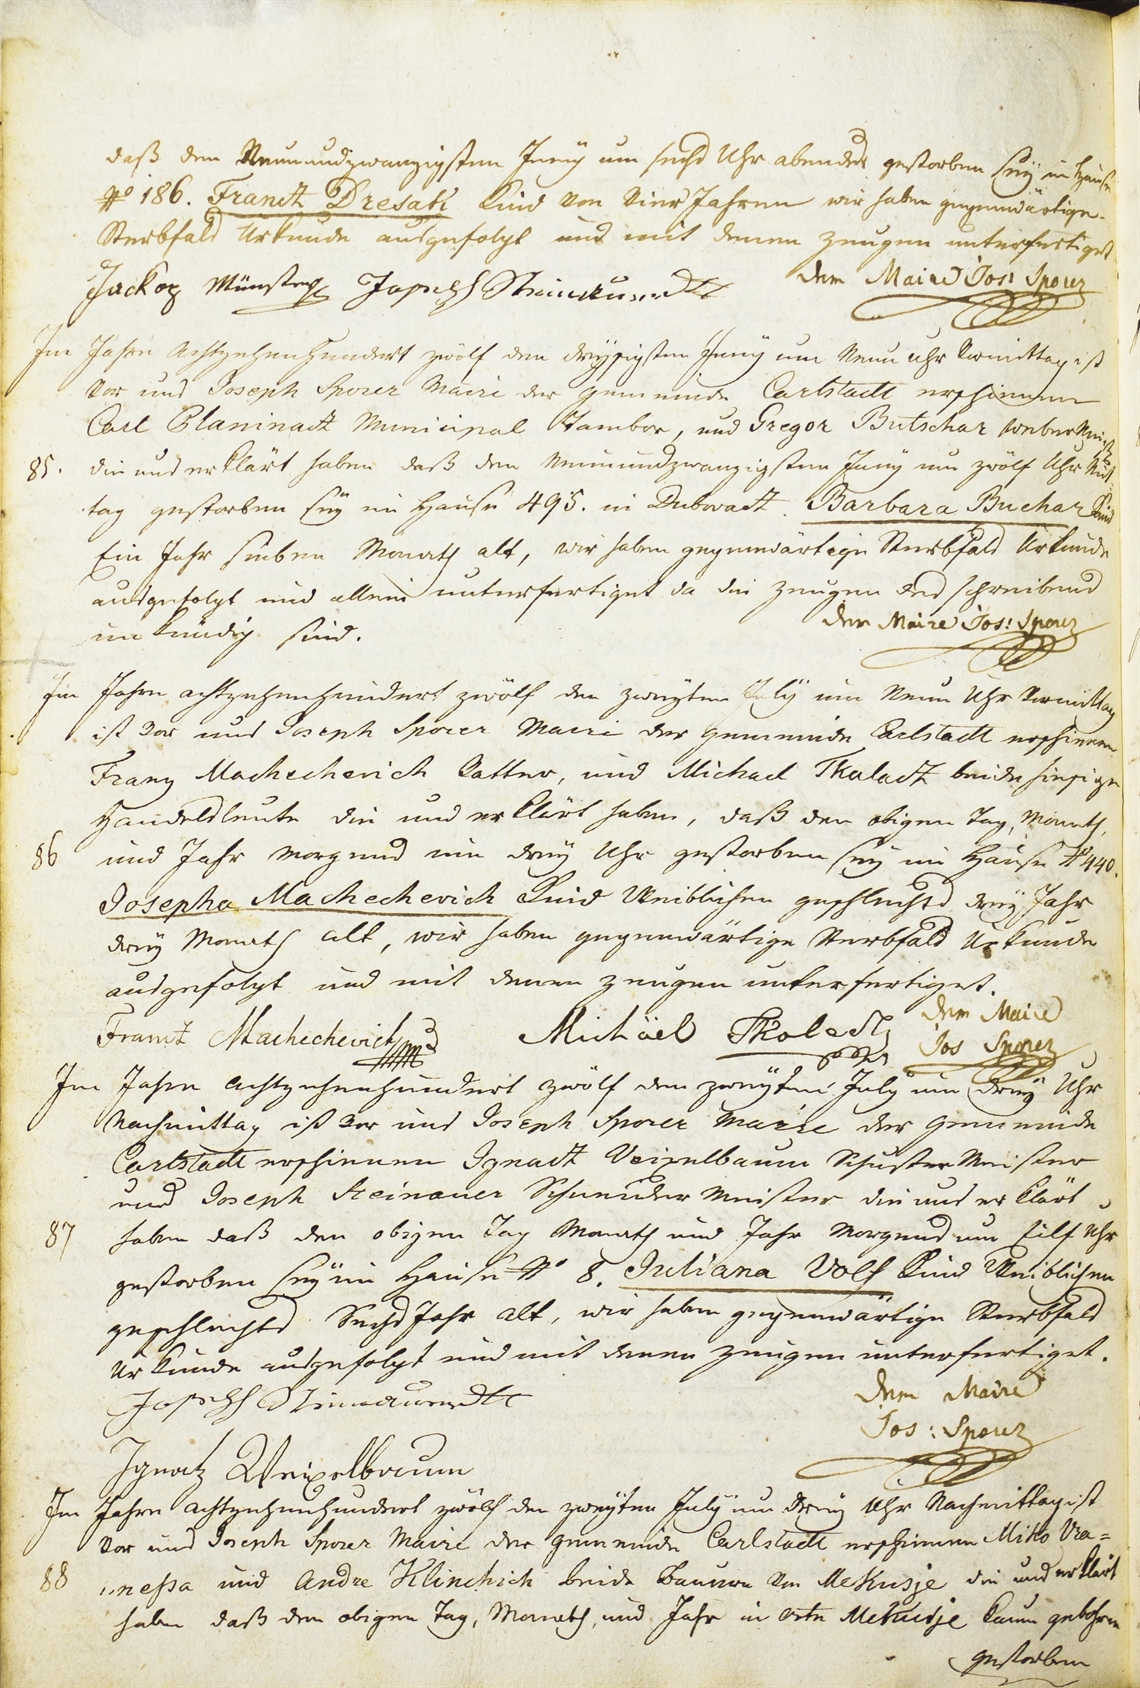 daß den Neunundzwanzigsten Juny um sechs Uhr abends gestorben sey im Hause
No 186. Frantz Dresatz Kind von vier Jahren wir haben gegenwärtige
Sterbfals Urkunde ausgefolgt und mit denen Zeugen unterfertiget
Jackop Münster Joseph Steinauer der Maire Jos: Sporer
Im Jahre Achtzehenhundert zwölf den dreyssigsten Juny um Neun Uhr Vormittag ist
vor uns Joseph Sporer Maire der Gemeinde Carlstadt erschienen
Carl Planinatz Municipal Tambor, und Gregor Butschar Weber Meister
85. die uns erklärt haben daß den neunundzwanzigsten Juny um zwölf Uhr Mit-
tag gestorben sey im Hause 495. in Dubovatz. Barbara Buchar Kind
Ein Jahr sieben Monath alt, wir haben gegenwärtige Sterbfals Urkunde
ausgefolgt und allein unterfertiget da die Zeugen des schreibens
unkündig sind. der Maire Jos: Sporer
Im Jahre achtzehenhundert zwölf den zweyten July um Neun Uhr Vormittag
ist vor uns Joseph Sporer Maire der Gemeinde Carlstadt erschienen
Franz Machechevich Vatter, und Michael Skalatz beide hiesige
Handelsleute die uns erklärt haben, daß den obigen Tag, Monath,
86 und Jahr Morgens um drey Uhr gestorben sey im Hause No 440.
Josepha Machechevich Kind Weiblichen geschlechts drey Jahr
drey Monath alt, wir haben gegenwärtige Sterbfals Urkunde
ausgefolgt und mit denen Zeugen unterfertiget.
Frantz Machechevich Michäel Skoletz der Maire
Jos Sporer
Im Jahre Achtzehenhundert zwölf den zweyten July um drey Uhr
Nachmittag ist vor uns Joseph Sporer Maire der Gemeinde
Carlstadt erschienen Ignatz Veixelbaum Schuster Meister
und Joseph Steinauer Schneider Meister die uns erklärt
87 haben daß den obigen Tag Monath und Jahr Morgens um Eilf Uhr
gestorben sey im Hause No 8. Juliana Volf Kind Weiblichen
geschlechts Sechs Jahr alt, wir haben gegenwärtige Sterbfals
Urkunde ausgefolgt und mit denen Zeugen unterfertiget.
Joseph Steinauer der Maire
Jos: Sporer
Ignatz Weixelbaum
Im Jahre achtzehenhundert zwölf den zweyten July um drey Uhr Nachmittag ist
vor uns Joseph Sporer Maire der Gemeinde Carlstadt erschienen Miko Vra=
88 nessa und Andre Klinchich beide Bauern von Mekusje die uns erklärt
haben daß den obigen Tag, Monath, und Jahr in orte Mekusje kaum gebohren
gestorben